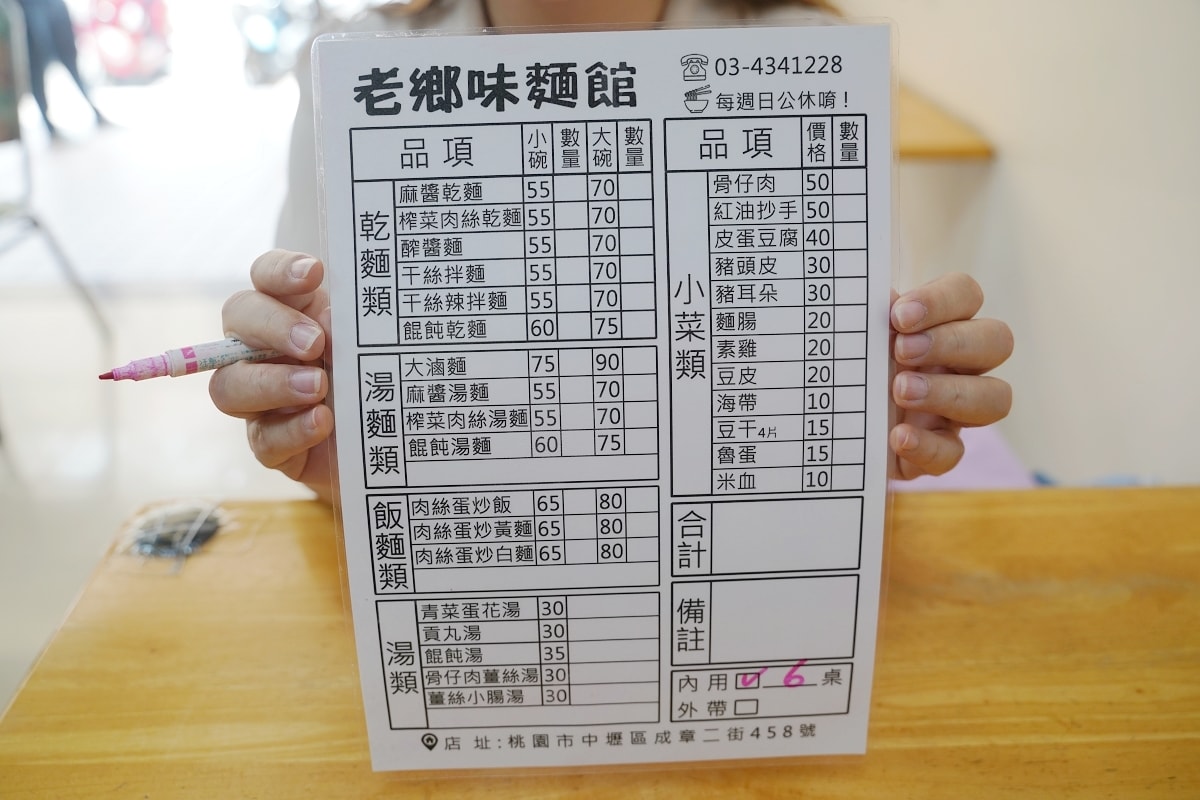 老鄉味麵館
03-4341228
每週日公休唷！
品項 小碗 數量 大碗 數量
乾麵類
麻醬乾麵 55 70
榨菜肉絲乾麵 55 70
醡醬麵 55 70
干絲拌麵 55 70
干絲辣拌麵 55 70
餛飩乾麵 60 75
湯麵類
大滷麵 75 90
麻醬湯麵 55 70
榨菜肉絲湯麵 55 70
餛飩湯麵 60 75
飯麵類
肉絲蛋炒飯 65 80
肉絲蛋炒黃麵 65 80
肉絲蛋炒白麵 65 80
湯類
青菜蛋花湯 30
貢丸湯 30
餛飩湯 35
骨仔肉薑絲湯 30
薑絲小腸湯 30
品項 價格 數量
小菜類
骨仔肉 50
紅油抄手 50
皮蛋豆腐 40
豬頭皮 30
豬耳朵 30
麵腸 20
素雞 20
豆皮 20
海帶 10
豆干4片 15
魯蛋 15
米血 10
合計
備註
內用 ✓ 6 桌
外帶
店址:桃園市中壢區成章二街458號